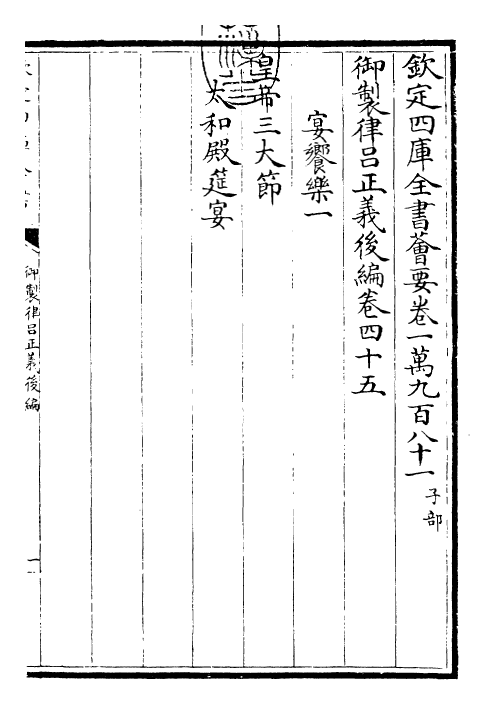 欽定四庫全書薈要卷一萬九百八十一 子部
御製律吕正義後編卷四十五
宴饗樂一
皇帝三大節
太和殿筵宴
御製律吕正義後編
一